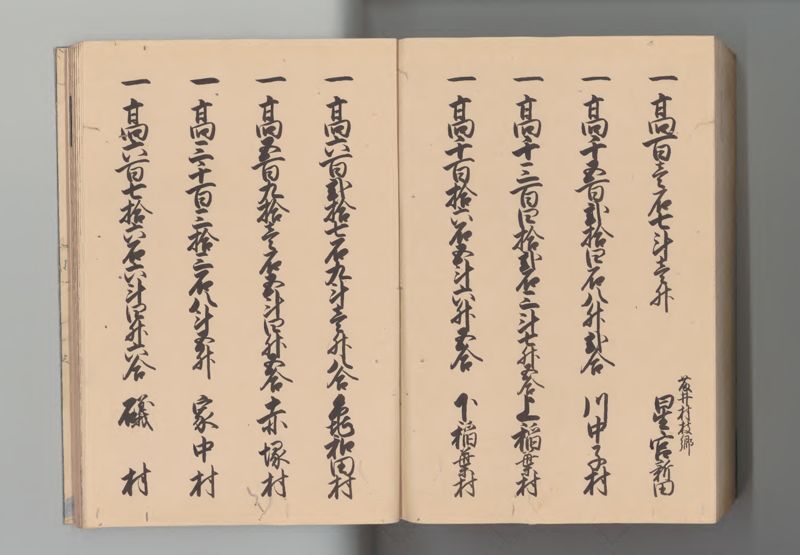 一高百壱石七斗壱升 藤井村枝郷 星宮新田
一高千五百弐拾四石八升弐合 川中子村
一高千三百四拾弐石二斗七升五合 上稲葉村
一高千百拾六石五斗六升五合 下稲葉村
一高六百弐拾七石九斗壱升八合 亀和田村
一高五百九拾壱石五斗四升五合 赤塚村
一高二千百二拾二石八斗五升 家中村
一高六百七拾六石六斗四升六合 礒村